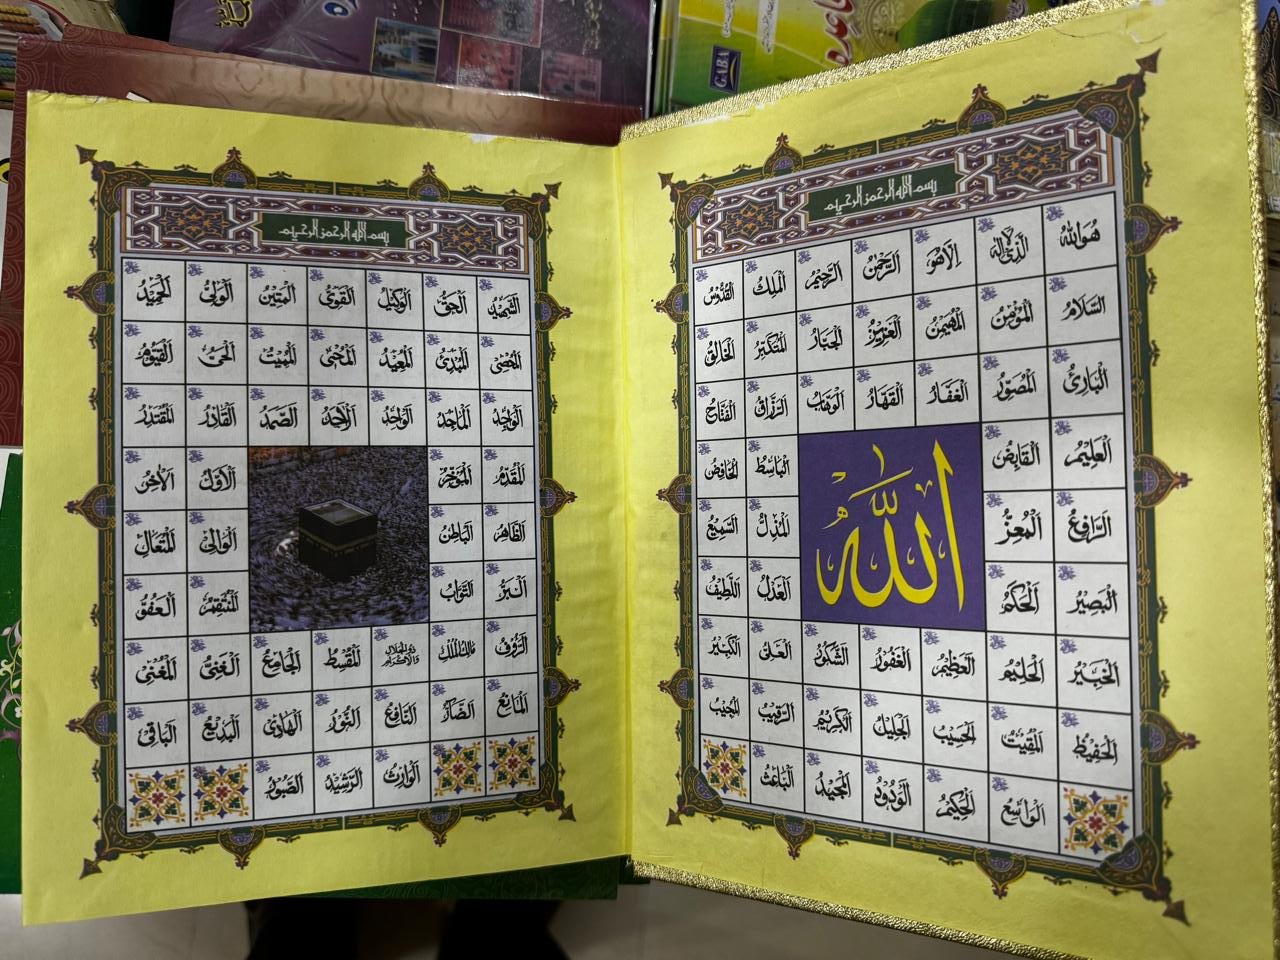 GABA
قاعدہ
بسم الله الرحمن الرحيم
هُوَاللّٰهُ الَّذِي لَا إِلٰهَ إِلَّا هُوَ الرَّحْمٰنُ الرَّحِيْمُ الْمَلِكُ الْقُدُّوْسُ
السَّلَامُ الْمُؤْمِنُ الْمُهَيْمِنُ الْعَزِيْزُ الْجَبَّارُ الْمُتَكَبِّرُ الْخَالِقُ
الْبَارِئُ الْمُصَوِّرُ الْغَفَّارُ الْقَهَّارُ الْوَهَّابُ الرَّزَّاقُ الْفَتَّاحُ
الْعَلِيْمُ الْقَابِضُ الْبَاسِطُ الْخَافِضُ
الرَّافِعُ الْمُعِزُّ الْمُذِلُّ السَّمِيْعُ
الله
الْبَصِيْرُ الْحَكَمُ الْعَدْلُ اللَّطِيْفُ
الْخَبِيْرُ الْحَلِيْمُ الْعَظِيْمُ الْغَفُوْرُ الشَّكُوْرُ الْعَلِيُّ الْكَبِيْرُ
الْحَفِيْظُ الْمُقِيْتُ الْحَسِيْبُ الْجَلِيْلُ الْكَرِيْمُ الرَّقِيْبُ الْمُجِيْبُ
الْوَاسِعُ الْحَكِيْمُ الْوَدُوْدُ الْمَجِيْدُ الْبَاعِثُ
بسم الله الرحمن الرحيم
الشَّهِيْدُ الْحَقُّ الْوَكِيْلُ الْقَوِيُّ الْمَتِيْنُ الْوَلِيُّ الْحَمِيْدُ
الْمُحْصِيْ الْمُبْدِئُ الْمُعِيْدُ الْمُحْيِيْ الْمُمِيْتُ الْحَيُّ الْقَيُّوْمُ
الْوَاجِدُ الْمَاجِدُ الْوَاحِدُ الْأَحَدُ الصَّمَدُ الْقَادِرُ الْمُقْتَدِرُ
الْمُقَدِّمُ الْمُؤَخِّرُ الْأَوَّلُ الْآخِرُ
الظَّاهِرُ الْبَاطِنُ الْوَالِيْ الْمُتَعَالُ
الْبَرُّ التَّوَّابُ الْمُنْتَقِمُ الْعَفُوُّ
الرَّؤُوْفُ مَالِكُ الْمُلْكِ ذُو الْجَلَالِ وَالْإِكْرَامِ الْمُقْسِطُ الْجَامِعُ الْغَنِيُّ الْمُغْنِيُ
الْمَانِعُ الضَّارُّ النَّافِعُ النُّوْرُ الْهَادِيْ الْبَدِيْعُ الْبَاقِيْ
الْوَارِثُ الرَّشِيْدُ الصَّبُوْرُ